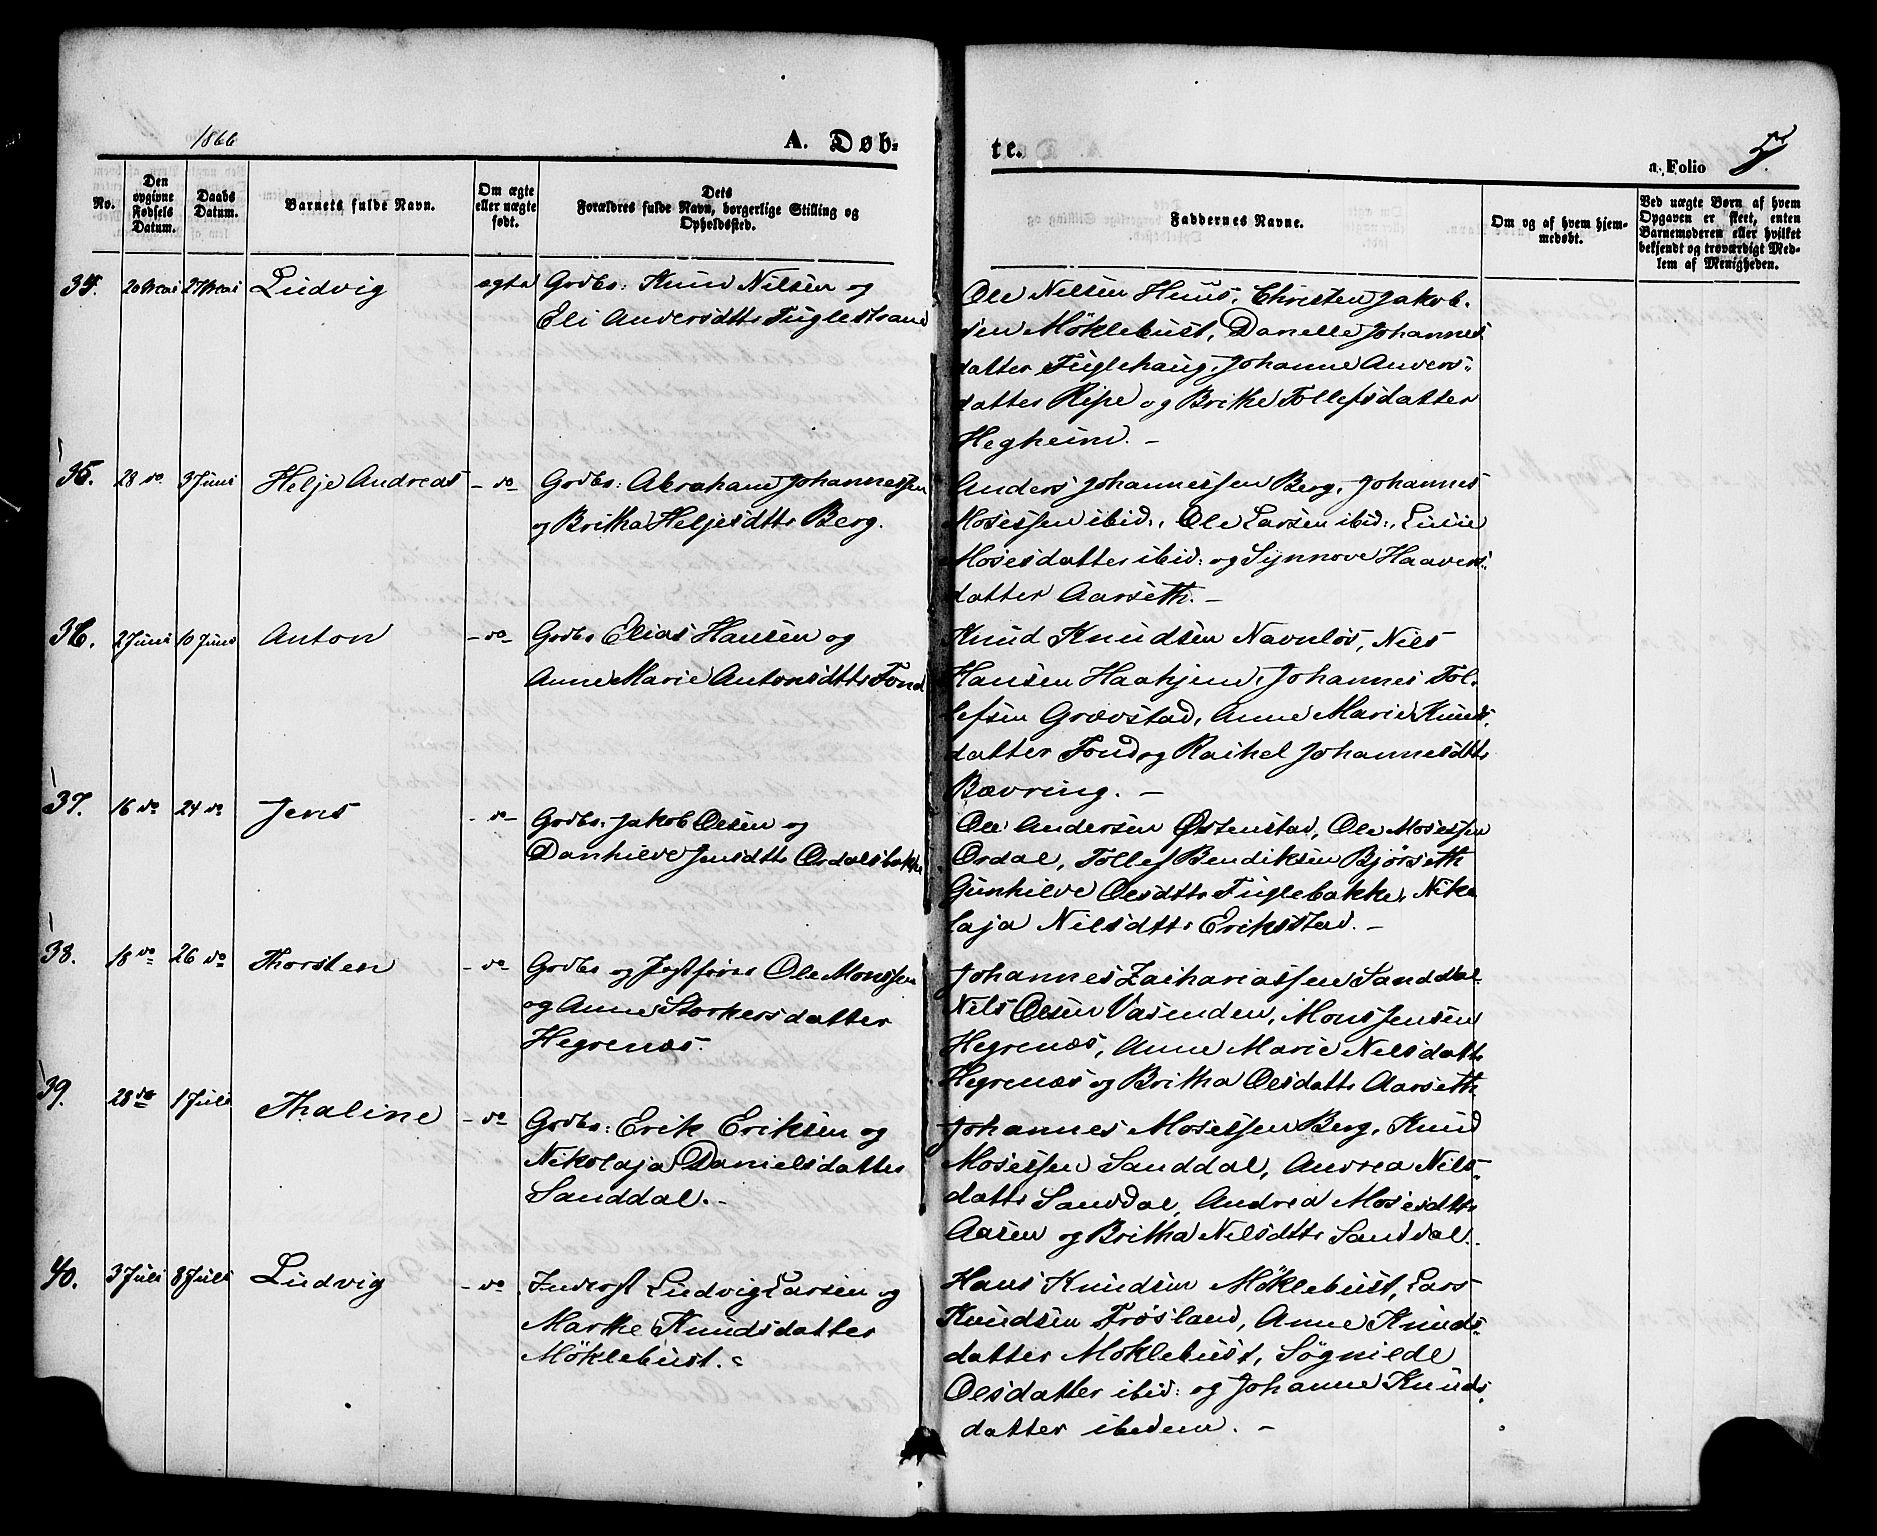 1866
A. Døb-
te.
a. Folio 5.
No.
Den opgivne Fødsels Datum.
Daabs Datum.
Barnets fulde Navn.
Om ægte eller uægte født.
Dets Forældres fulde Navn, borgerlige Stilling og Opholdssted.
Faddernes Navne.
Om og af hvem hjemmedøbt.
Ved uægte Børn af hvem Opgaven er skeet, enten Barnemoderen eller hvilket bekjendt og troværdigt Medlem af Menigheden.
34. 20 Mai 27 Mai Ludvig ægte Grdbr: Knud Nilsen og
Eli Andersdttr Fuglestrand
Ole Nilsen Huus, Christen Jakob-
sen Möklebust, Danelle Johannes
datter Fuglehaug, Johanne Anders-
datter Ripe og Brithe Tollefsdatter
Hegheim. -
35. 28 do. 3 Juni Helje Andreas - do - Grdbr: Abraham Johannessen
og Britha Heljesdttr Berg.
Anders Johannessen Berg, Johannes
Mosessen ibid:, Ole Larsen ibid:,
Mosesdatter ibid: og Synnove Haavers-
datter Aarseth. -
36. 2 Juni 10 Juni Anton - do - Grdbr Elias Hansen og
Anne Marie Antonsdttr Fond
Knud Knudsen Navnløs, Nils
Hansen Haahjem, Johannes Tol-
lefsen Grovstad, Anne Marie Knuds-
datter Fond og Rachel Johannesdttr
Bævring. -
37. 16 do 24 do Jens - do - Grdbr. Jakob Olsen og
Danhilde Jensdttr Ordalsbakke
Ole Andersen Østenstad, Ole Mosessen
Ordal, Tollef Bendiksen Bjørseth
Gunhilde Olesdttr Fuglebakke, Niko
laja Nilsdttr Eriksstad. -
38. 18 do 26 do Thorsten - do - Grdbr og Ole Monssen
og Anne Storkersdatter
Hegrenæs.
Johannes Zachariassen Sanddal
Nils Olsen Vasenden, Mons Jensen
Hegrenæs, Anne Marie Nilsdattr
Hegrenæs og Britha Olesdattr Aarseth
39. 28 do 1 Juli Thaline - do - Grdbr: Erik Eriksen og
Nikolaja Danielsdatter
Sanddal. -
Johannes Mosessen Berg, Knud
Mosessen Sanddal, Andrea Nils-
dattr Sanddal, Andrea Mosesdttr
Aasen og Britha Nilsdttr Sanddal.
40. 3 Juli 8 Juli Ludvig - do - Inderst Ludvig Larsen og
Marthe Knudsdatter
Möklebust.
Hans Knudsen Möklebust, Lars
Knudsen Frøsland, Anne Knuds-
datter Möklebust, Sögnilde
Olesdatter ibid: og Johanne Knuds-
datter ibidem. -